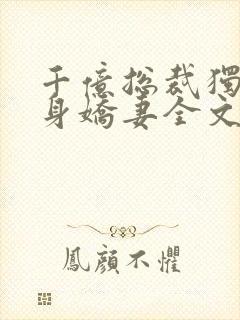 千億總裁獨
身嬌妻全文
鳳顏不懼